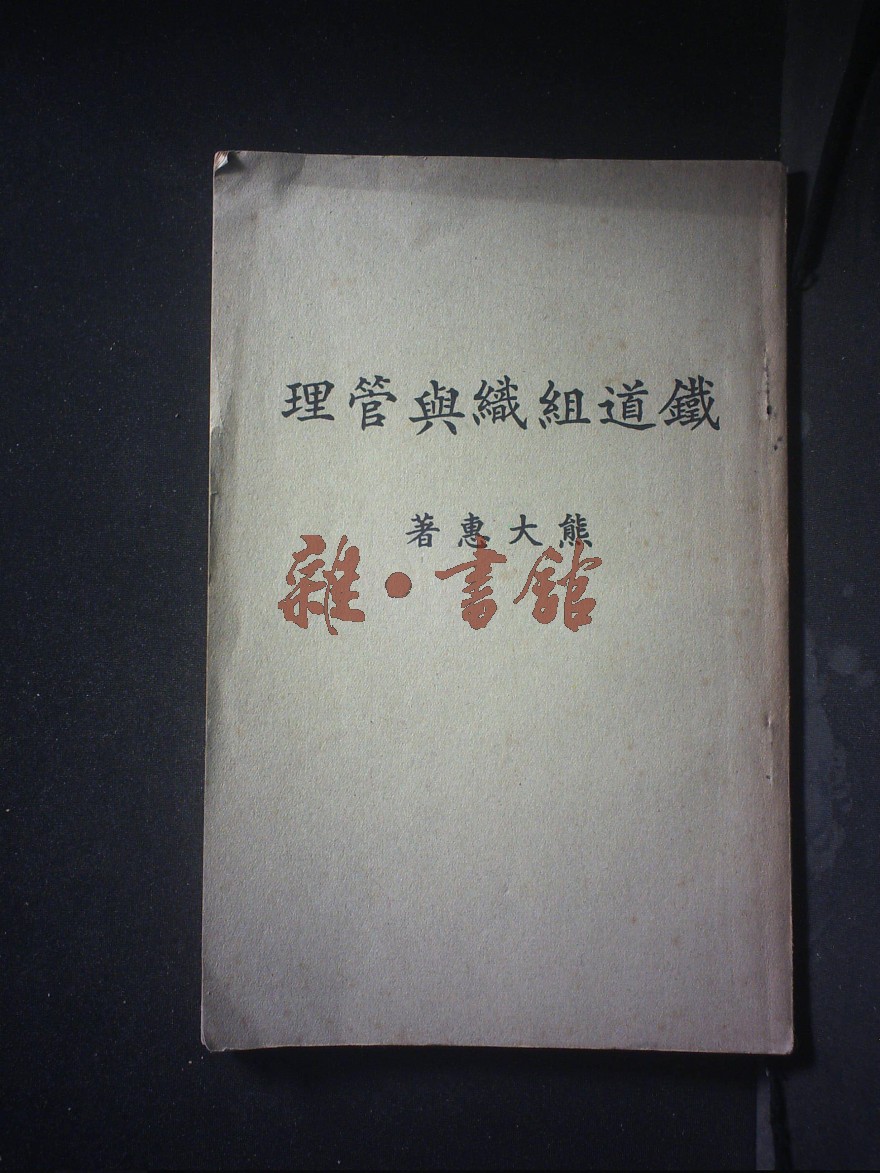 鐵道組織與管理
熊大惠著
雜·書館